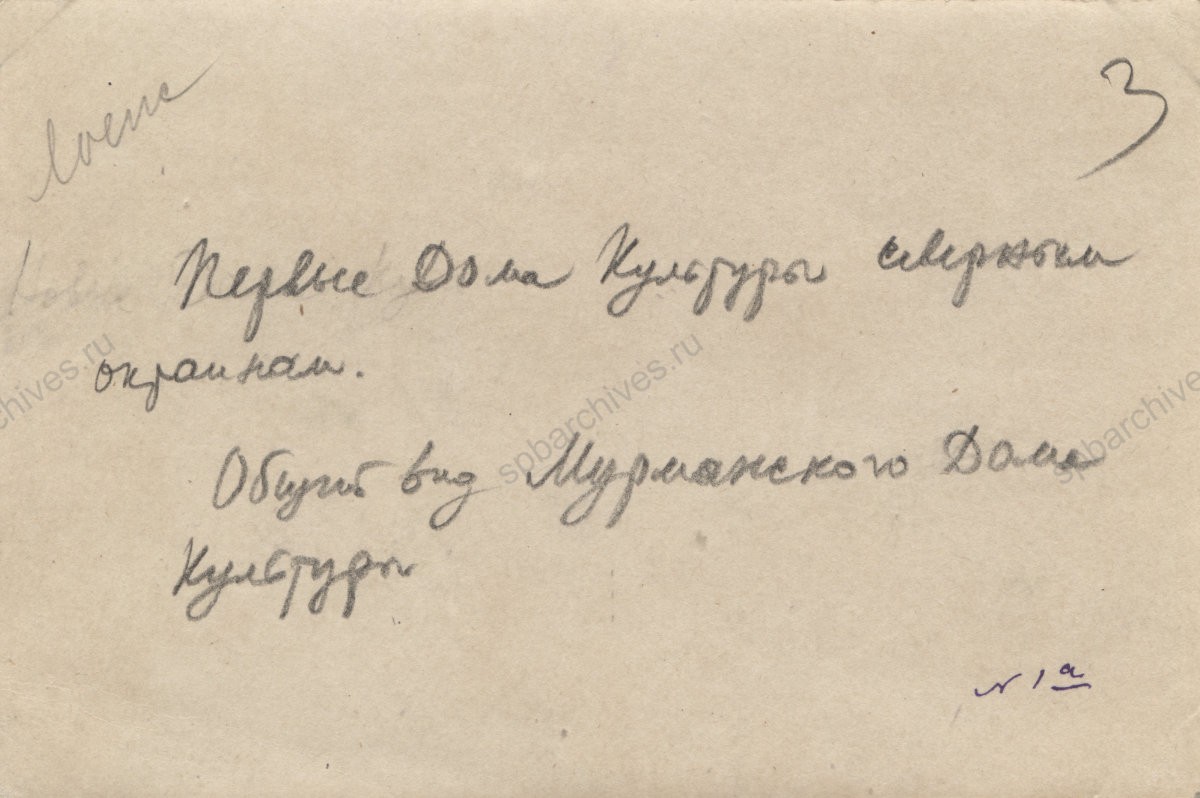 3
Первые Дома Культуры северным
окраинам.
Общий вид Мурманского Дома
Культуры
N 1а
spbarchives.ru